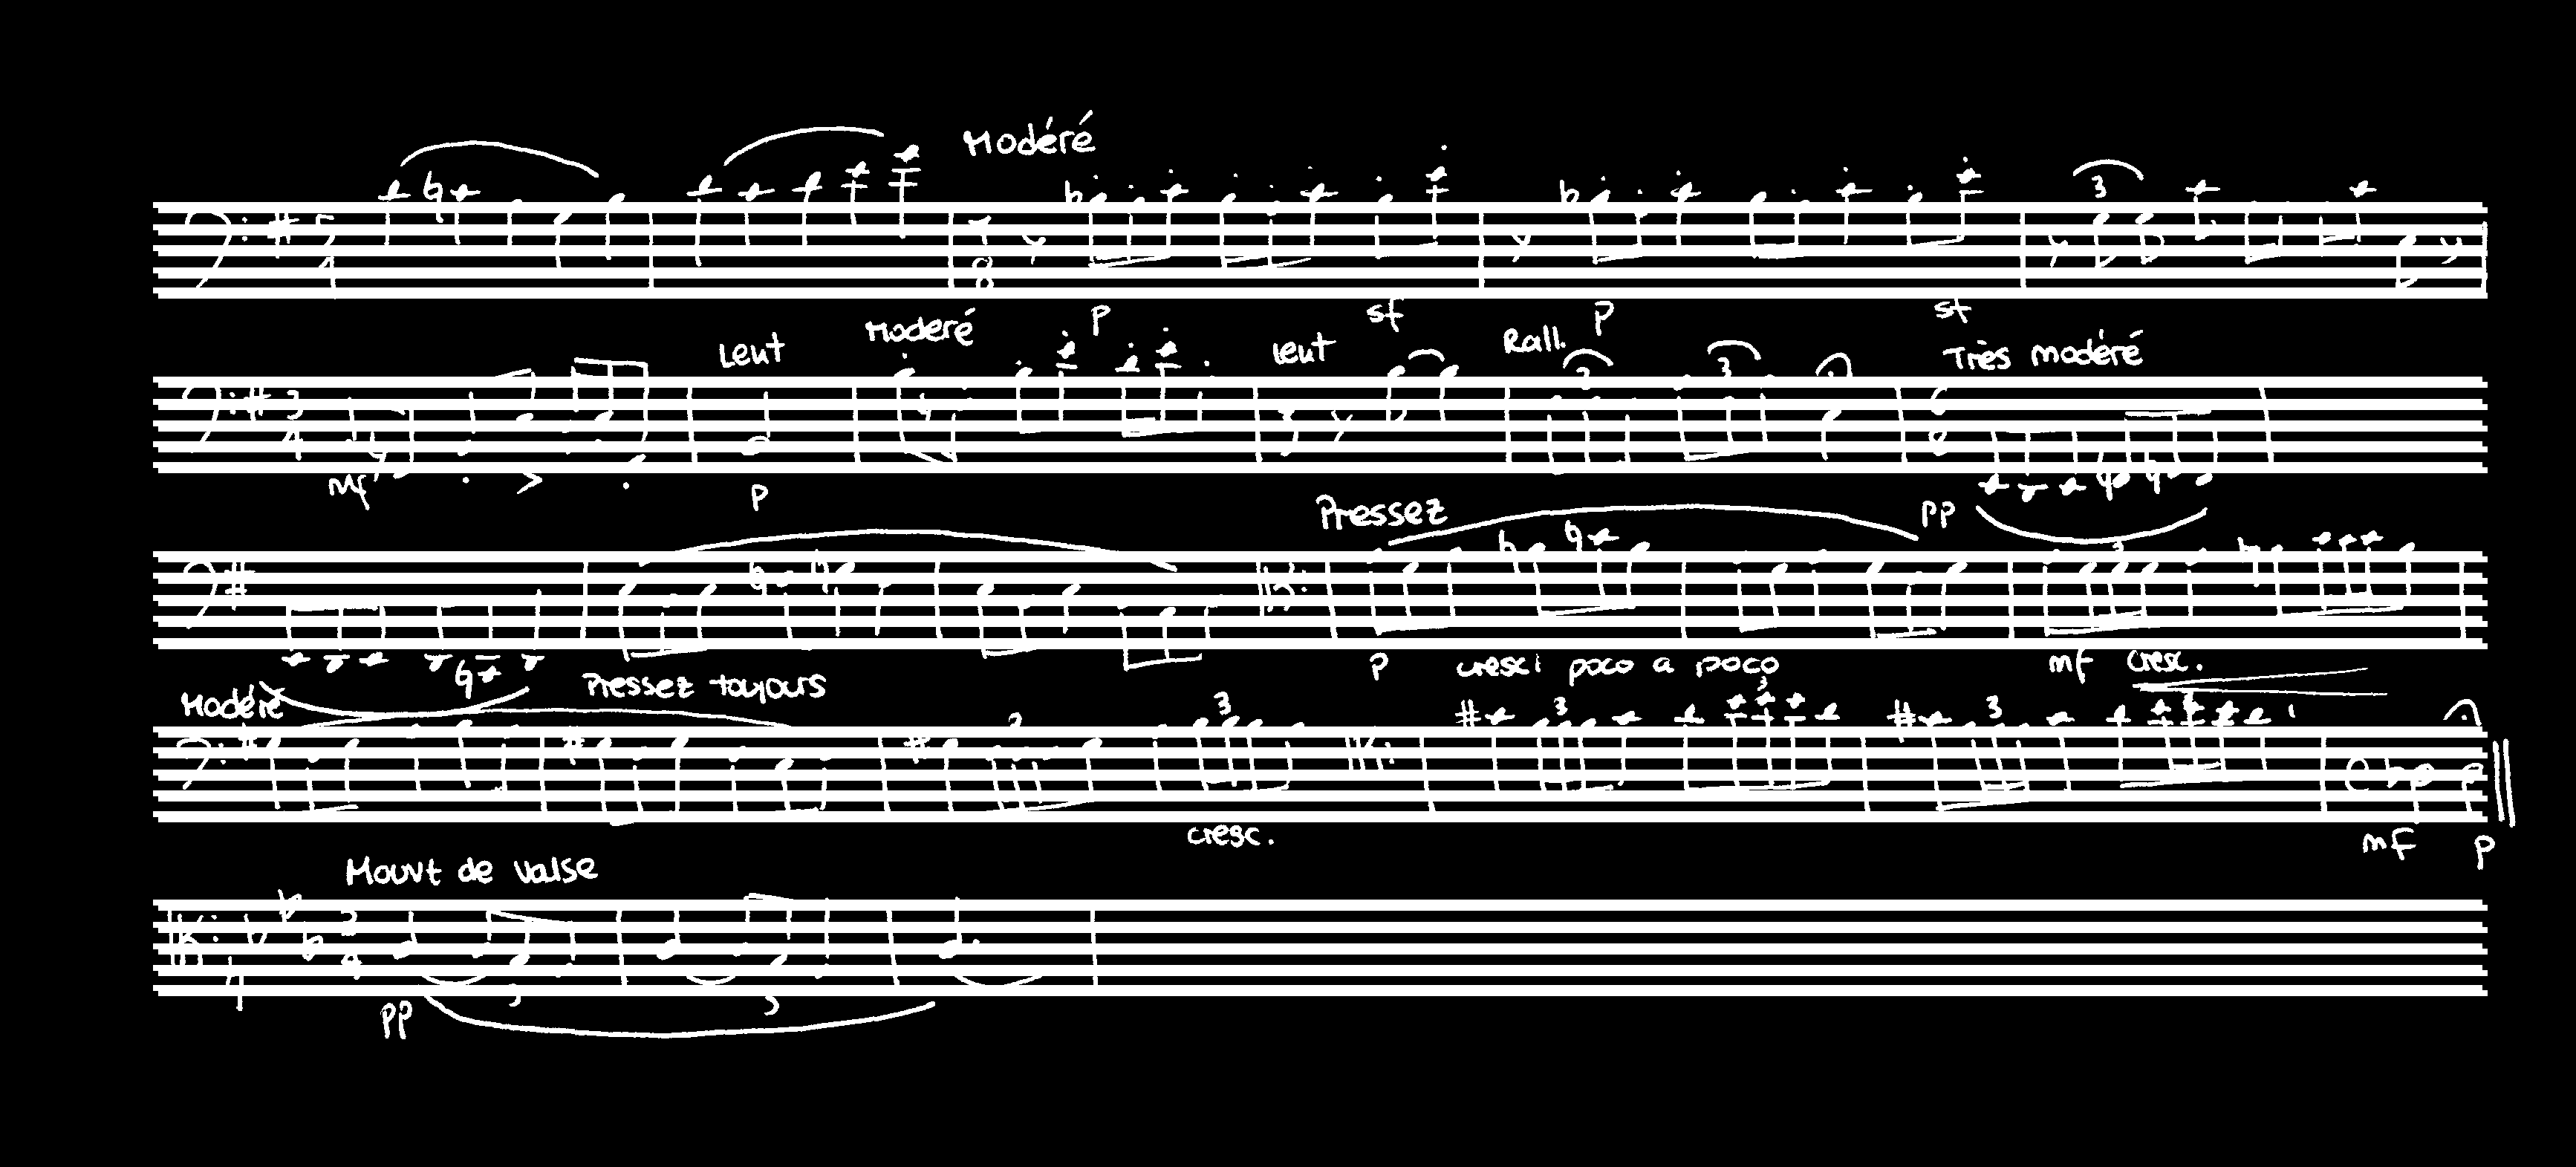 Modéré
3
p sf p sf
Lent Moderé Lent Rall. Très modéré
3 3
mf p pp
Pressez
3
p cresci poco a poco mf cresc.
Modéré Pressez toujours
3 3 3 3 3
cresc. mf p
Mouvt de valse
pp 3 3